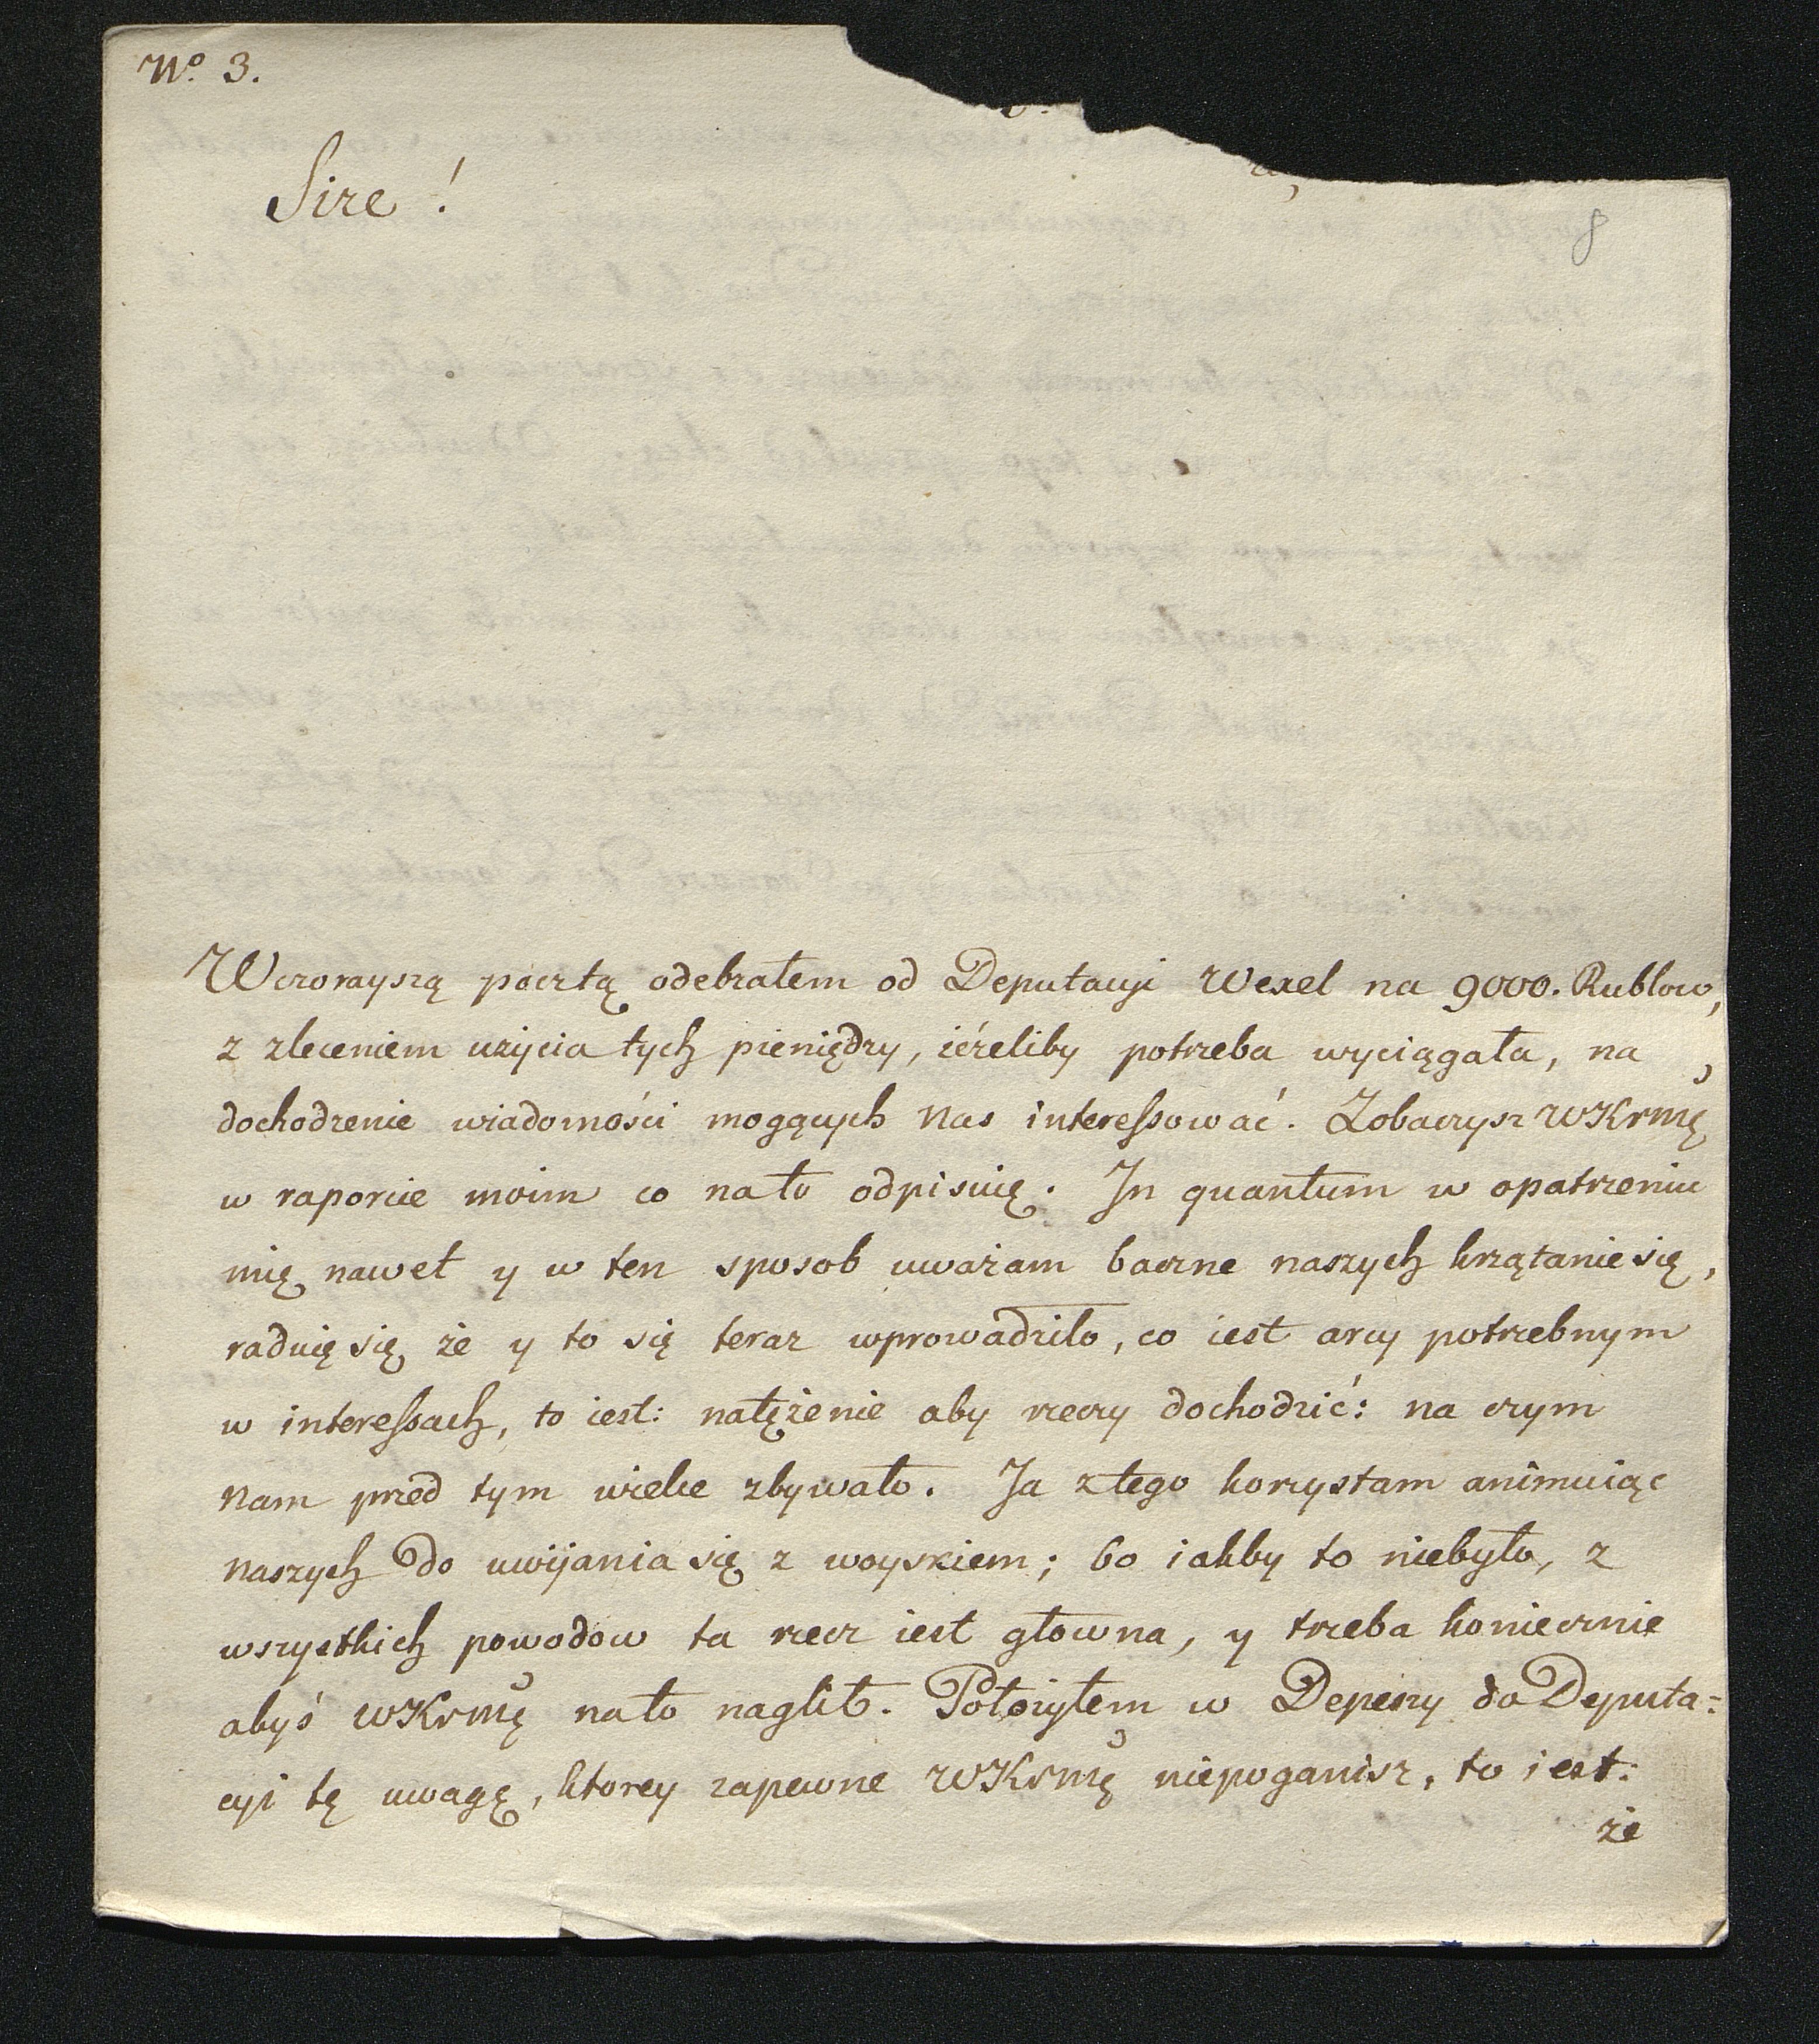 No. 3.
Sire!
8
Wczorayszą pocztą odebrałem od Deputacyi Wexel na 9000. Rublow,
z zleceniem użycia tych pieniędzy, ieżeliby potrzeba wyciągała, na
dochodzenie wiadomości mogących nas interessować. Zobaczysz WKrmę
w raporcie moim co nato odpisuię. In quantum w opatrzeniu
mię nawet y w ten sposob uważam baczne naszych krzątanie się,
raduię się że y to się teraz wprowadziło, co iest arcy potrzebnym
w interessach, to iest: natężenie aby rzeczy dochodzić: na czym
nam przed tym wielce zbywało. Ja z tego korzystam animuiąc
naszych do uwijania się z woyskiem; bo iakby to niebyło, z
wszystkich powodow ta rzecz iest głowna, y trzeba koniecznie
abyś WKrmę nato naglił. Położyłem w Depeszy do Deputa=
cyi tę uwagę, ktorey zapewne WKrmę niepoganisz, to iest:
że